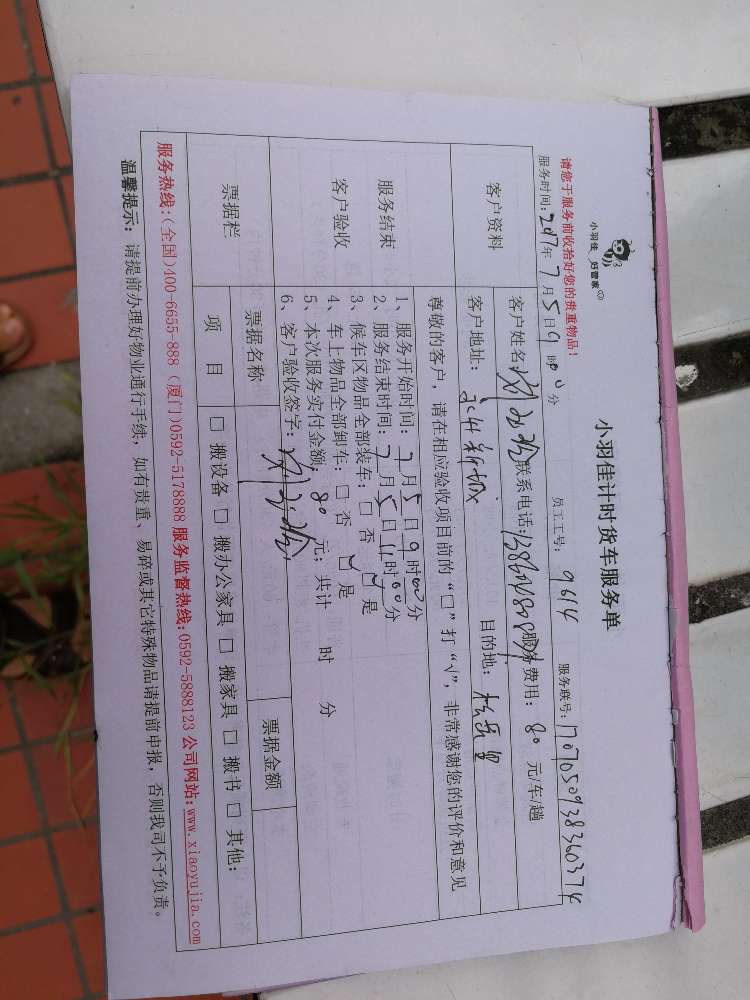 小羽佳 好管家
小羽佳计时货车服务单
请您于服务前收拾好您的贵重物品！
服务时间：2017年7月5日9时00分 员工工号：9614 服务联号：1707050938360374
客户资料
客户姓名 联系电话： 服务费用：80元/车/趟
客户地址： 目的地：松岳里
尊敬的客户，请在相应验收项目前的“□”打“√”，非常感谢您的评价和意见
服务结束
客户验收
1、服务开始时间：7月5日9时00分
2、服务结束时间：7月5日11时00分
3、候车区物品全部装车：□否 ☑是
4、车上物品全部卸车：□否 ☑是
5、本次服务实付金额：80元；共计 时 分
6、客户验收签字：
票据栏
票据名称 票据金额
项目 □搬设备 □搬办公家具 □搬家具 □搬书 □其他：
服务热线：(全国)400-6655-888 (厦门)0592-5178888 服务监督热线：0592-5888123 公司网站：www.xiaoyujia.com
温馨提示： 请提前办理好物业通行手续，如有贵重、易碎或其它特殊物品请提前申报，否则我司不予负责。